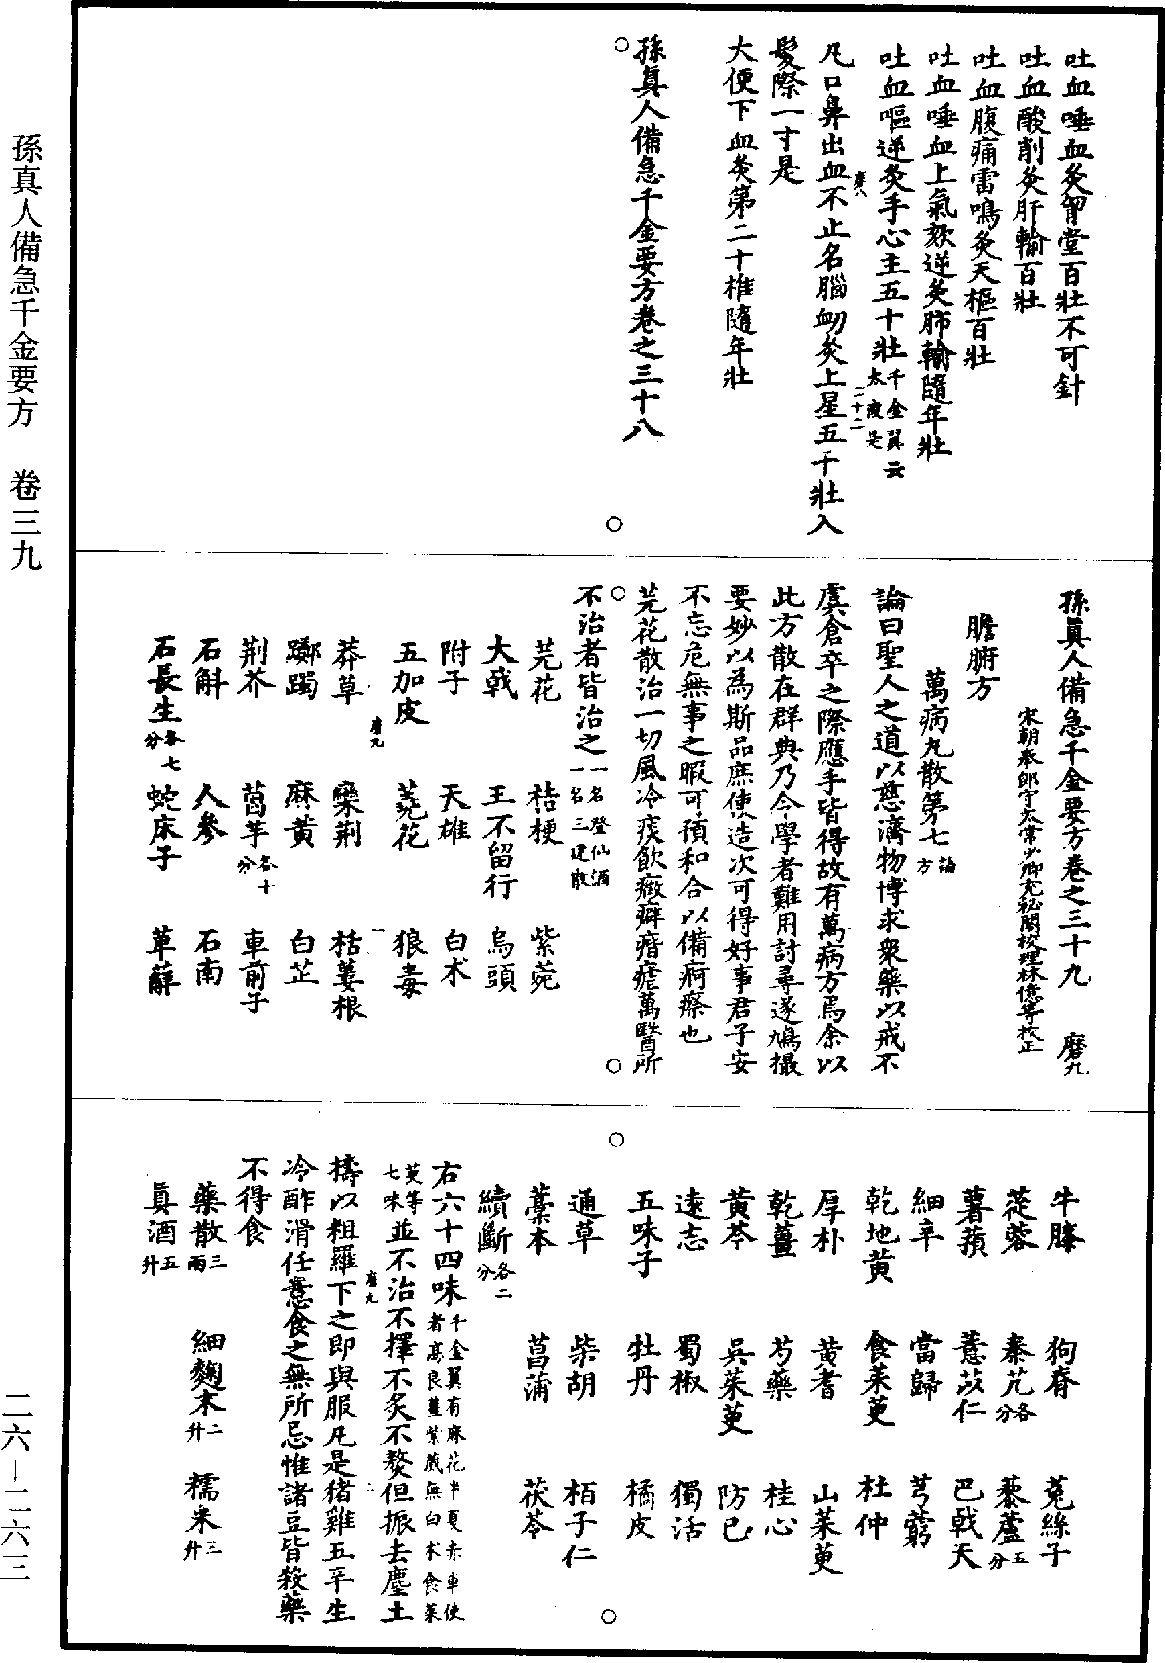 吐血唾血灸胷堂百壯不可針
吐血酸削灸肝輸百壯
吐血腹痛雷鳴灸天樞百壯
吐血唾血上氣欬逆灸肺輸隨年壯
吐血嘔逆灸手心主五十壯千金翼云太陵是
凡口鼻出血不止名腦衄灸上星五十壯入
髮際一寸是
大便下血灸第二十椎隨年壯
孫真人備急千金要方卷之三十八
孫真人備急千金要方卷之三十九 磨九
宋朝奉郎守太常少卿充秘閣校理林億等校正
膽腑方
萬病丸散第七論方
論曰聖人之道以慈濟物博求衆藥以戒不
虞倉卒之際應手皆得故有萬病方焉余以
此方散在群典乃令學者難用討尋遂鳩撮
要妙以為斯品庶使造次可得好事君子安
不忘危無事之暇可預和合以備痾瘵也
芫花散治一切風冷痰飲癥癖痎瘧萬醫所
不治者皆治之一名登仙酒一名三建散
芫花 桔梗 紫菀
大戟 王不留行 烏頭
附子 天雄 白朮
五加皮 蕘花 狼毒
莽草 欒荊 栝蔞根
躑躅 麻黃 白芷
荊芥 茵芋各十分 車前子
石斛 人參 石南
石長生各七分 蛇床子 萆薢
牛膝 狗脊 菟絲子
蓯蓉 秦艽各分 藜蘆五分
薯蕷 薏苡仁 巴戟天
細辛 當歸 芎藭
乾地黃 食茱萸 杜仲
厚朴 黃耆 山茱萸
乾薑 芍藥 桂心
黃芩 吳茱萸 防己
遠志 蜀椒 獨活
五味子 牡丹 橘皮
通草 柴胡 栢子仁
藁本 菖蒲 茯苓
續斷各二分
右六十四味千金翼有麻花半夏赤車使者高良薑紫葳無白朮食茱
萸等七味並不治不擇不炙不熬但振去塵土
擣以粗羅下之即與服凡是猪雞五辛生
冷酢滑任意食之無所忌惟諸豆皆殺藥
不得食
藥散三兩 細麴末二升 糯米三升
真酒五升
孫真人備急千金要方 卷三九
二六－二六三